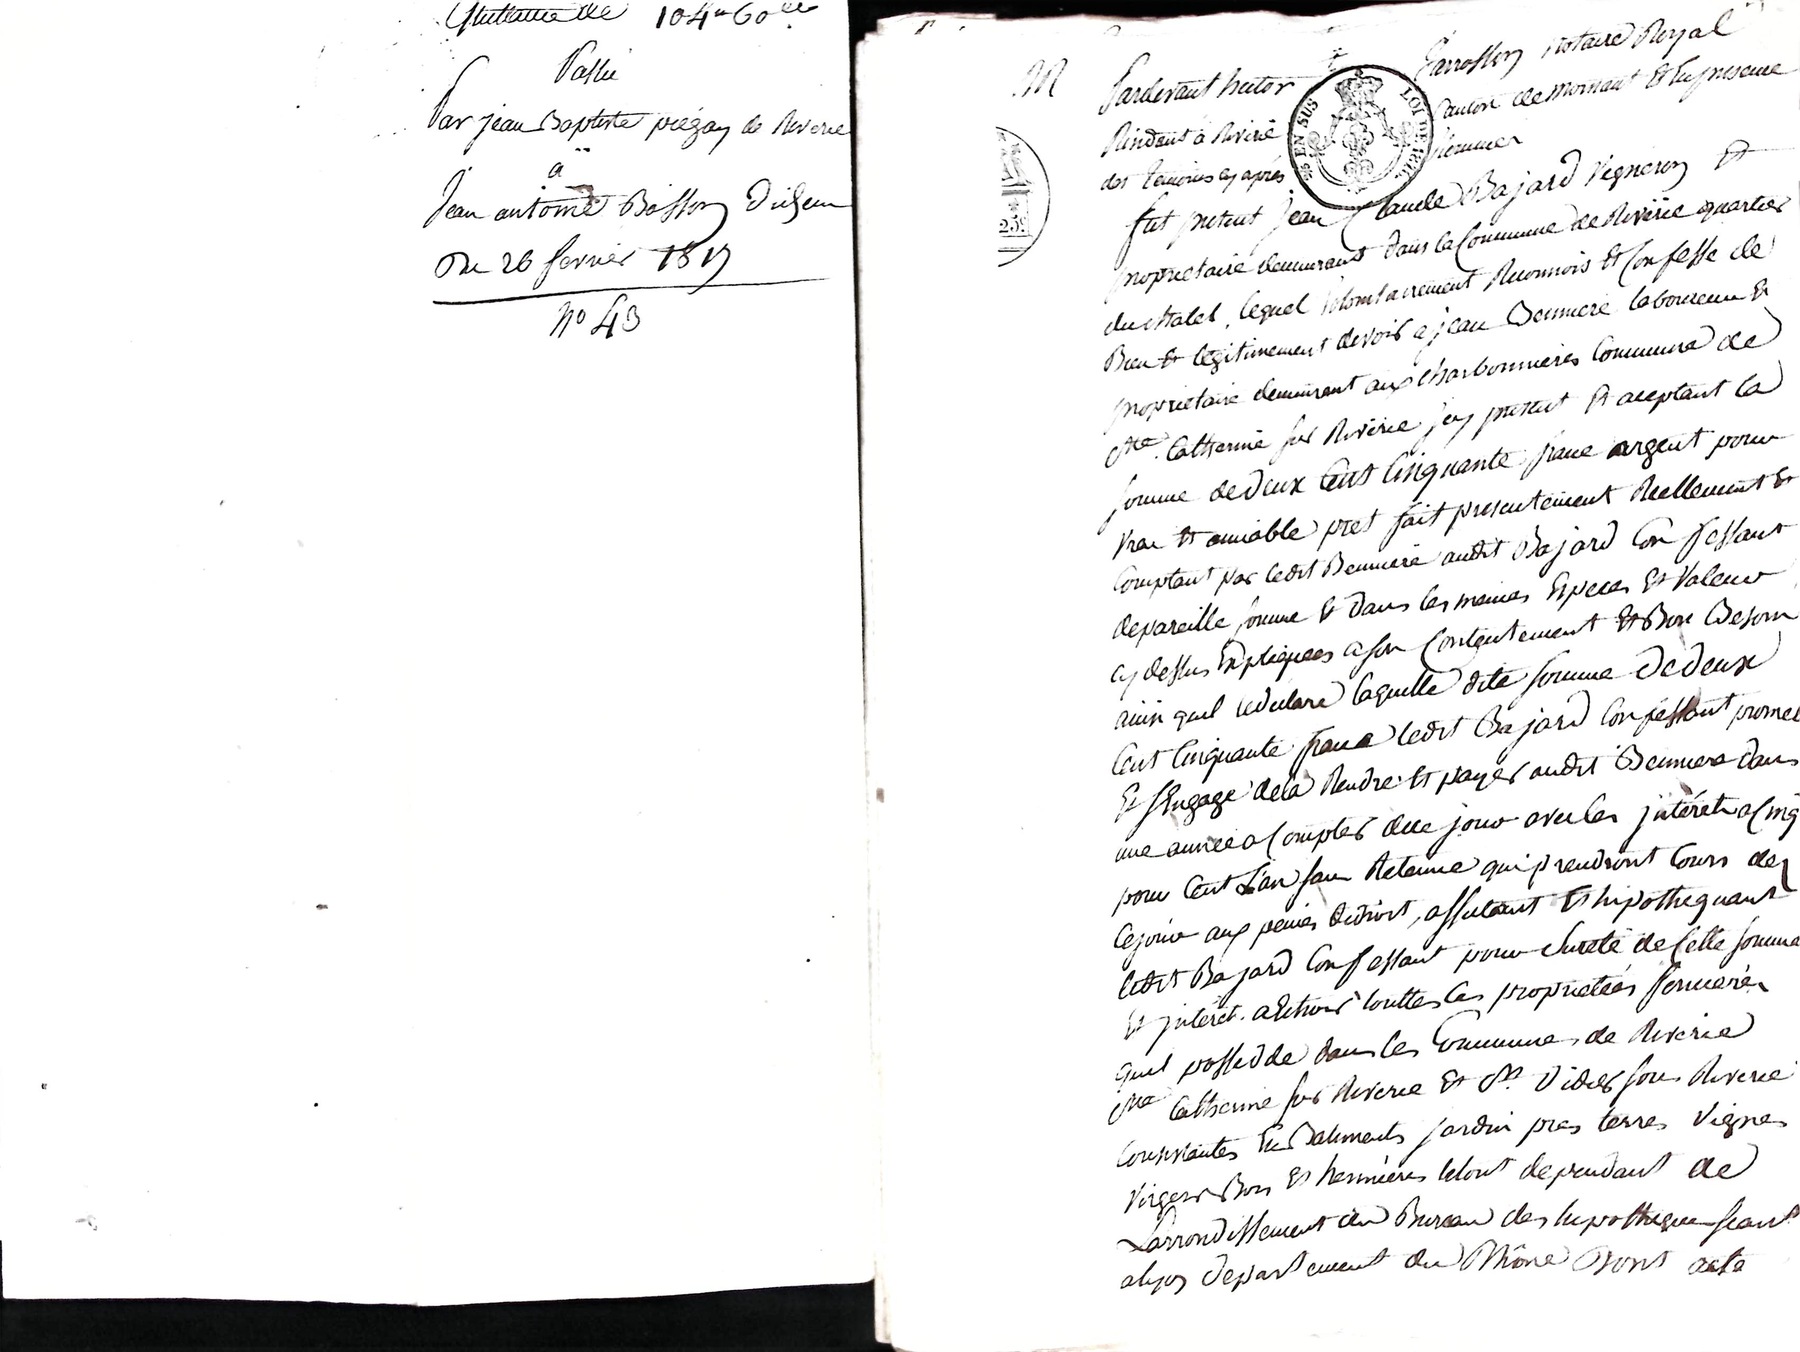 Quittance de 104 " 60 ce
Passée
Par jean Baptiste piégay de Riverie
a
Jean antoine Bosson Dudeu
Du 26 fevrier 1817
No 43
M
Pardevant hector farrosson Notaire Royal
Résidant a Riverie canton de mornant Et En presence
des temoins cy après nommés
EN SUS
LOI DE 1816
25c
fut present Jean Claude Bajard Vigneron Et
proprietaire demeurant dans la Commune de Riverie quartier
du chatel, lequel volontairement Reconnois Et Confesse de
Bien Et legitimement devoir a jean Bennière laboureur Et
proprietaire demeurant aux charbonnieres Commune de
Ste Catherine sur Riverie jcy present Et aceptant la
somme de Deux Cent Cinquante franc argent pour
vrai Et amiable pret fait presentement Reellement Et
Comptant par ledit Benniere audit Bajard Confessant
de pareille somme Et dans les memes Especes Et Valeur
cy dessus Expliquées a son Contentement Et Bon Besoin
ainsi quil le declare laquelle dite somme De deux
Cent Cinquante franc ledit Bajard Confessant promet
Et sEngage de la Rendre Et payer audit Benniere dans
une année a Compter de ce jour avec les jntérets a Cinq
pour Cent L'an sans Retenue qui prendront Cours des
Ce jour aux peines de droit, affectant Et hipothequant
ledit Bajard Confessant pour Sureté de Cette somme
Et jnterêt touttes les proprietées
quil possedde dans les Communes de Riverie
Ste Catherine sur Riverie Et St Didier sous Riverie
Consistantes En Batiments jardin pres terres Vignes
Vergers Bois Et hermieres letout dependant de
L'arrondissement du Bureau des hipotheques seant
a lyon departement du Rhône Dont acte